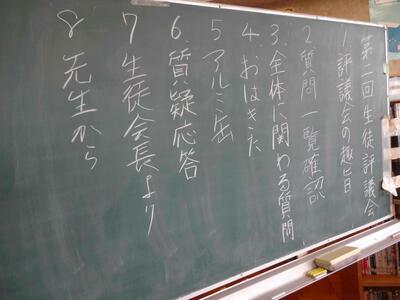 第一回生徒評議会
1.評議会の趣旨
2.質問一覧確認
3.全体に関わる質問
4.おはきた
5.アルミ缶
6.質疑応答
7.生徒会長より
8 先生から